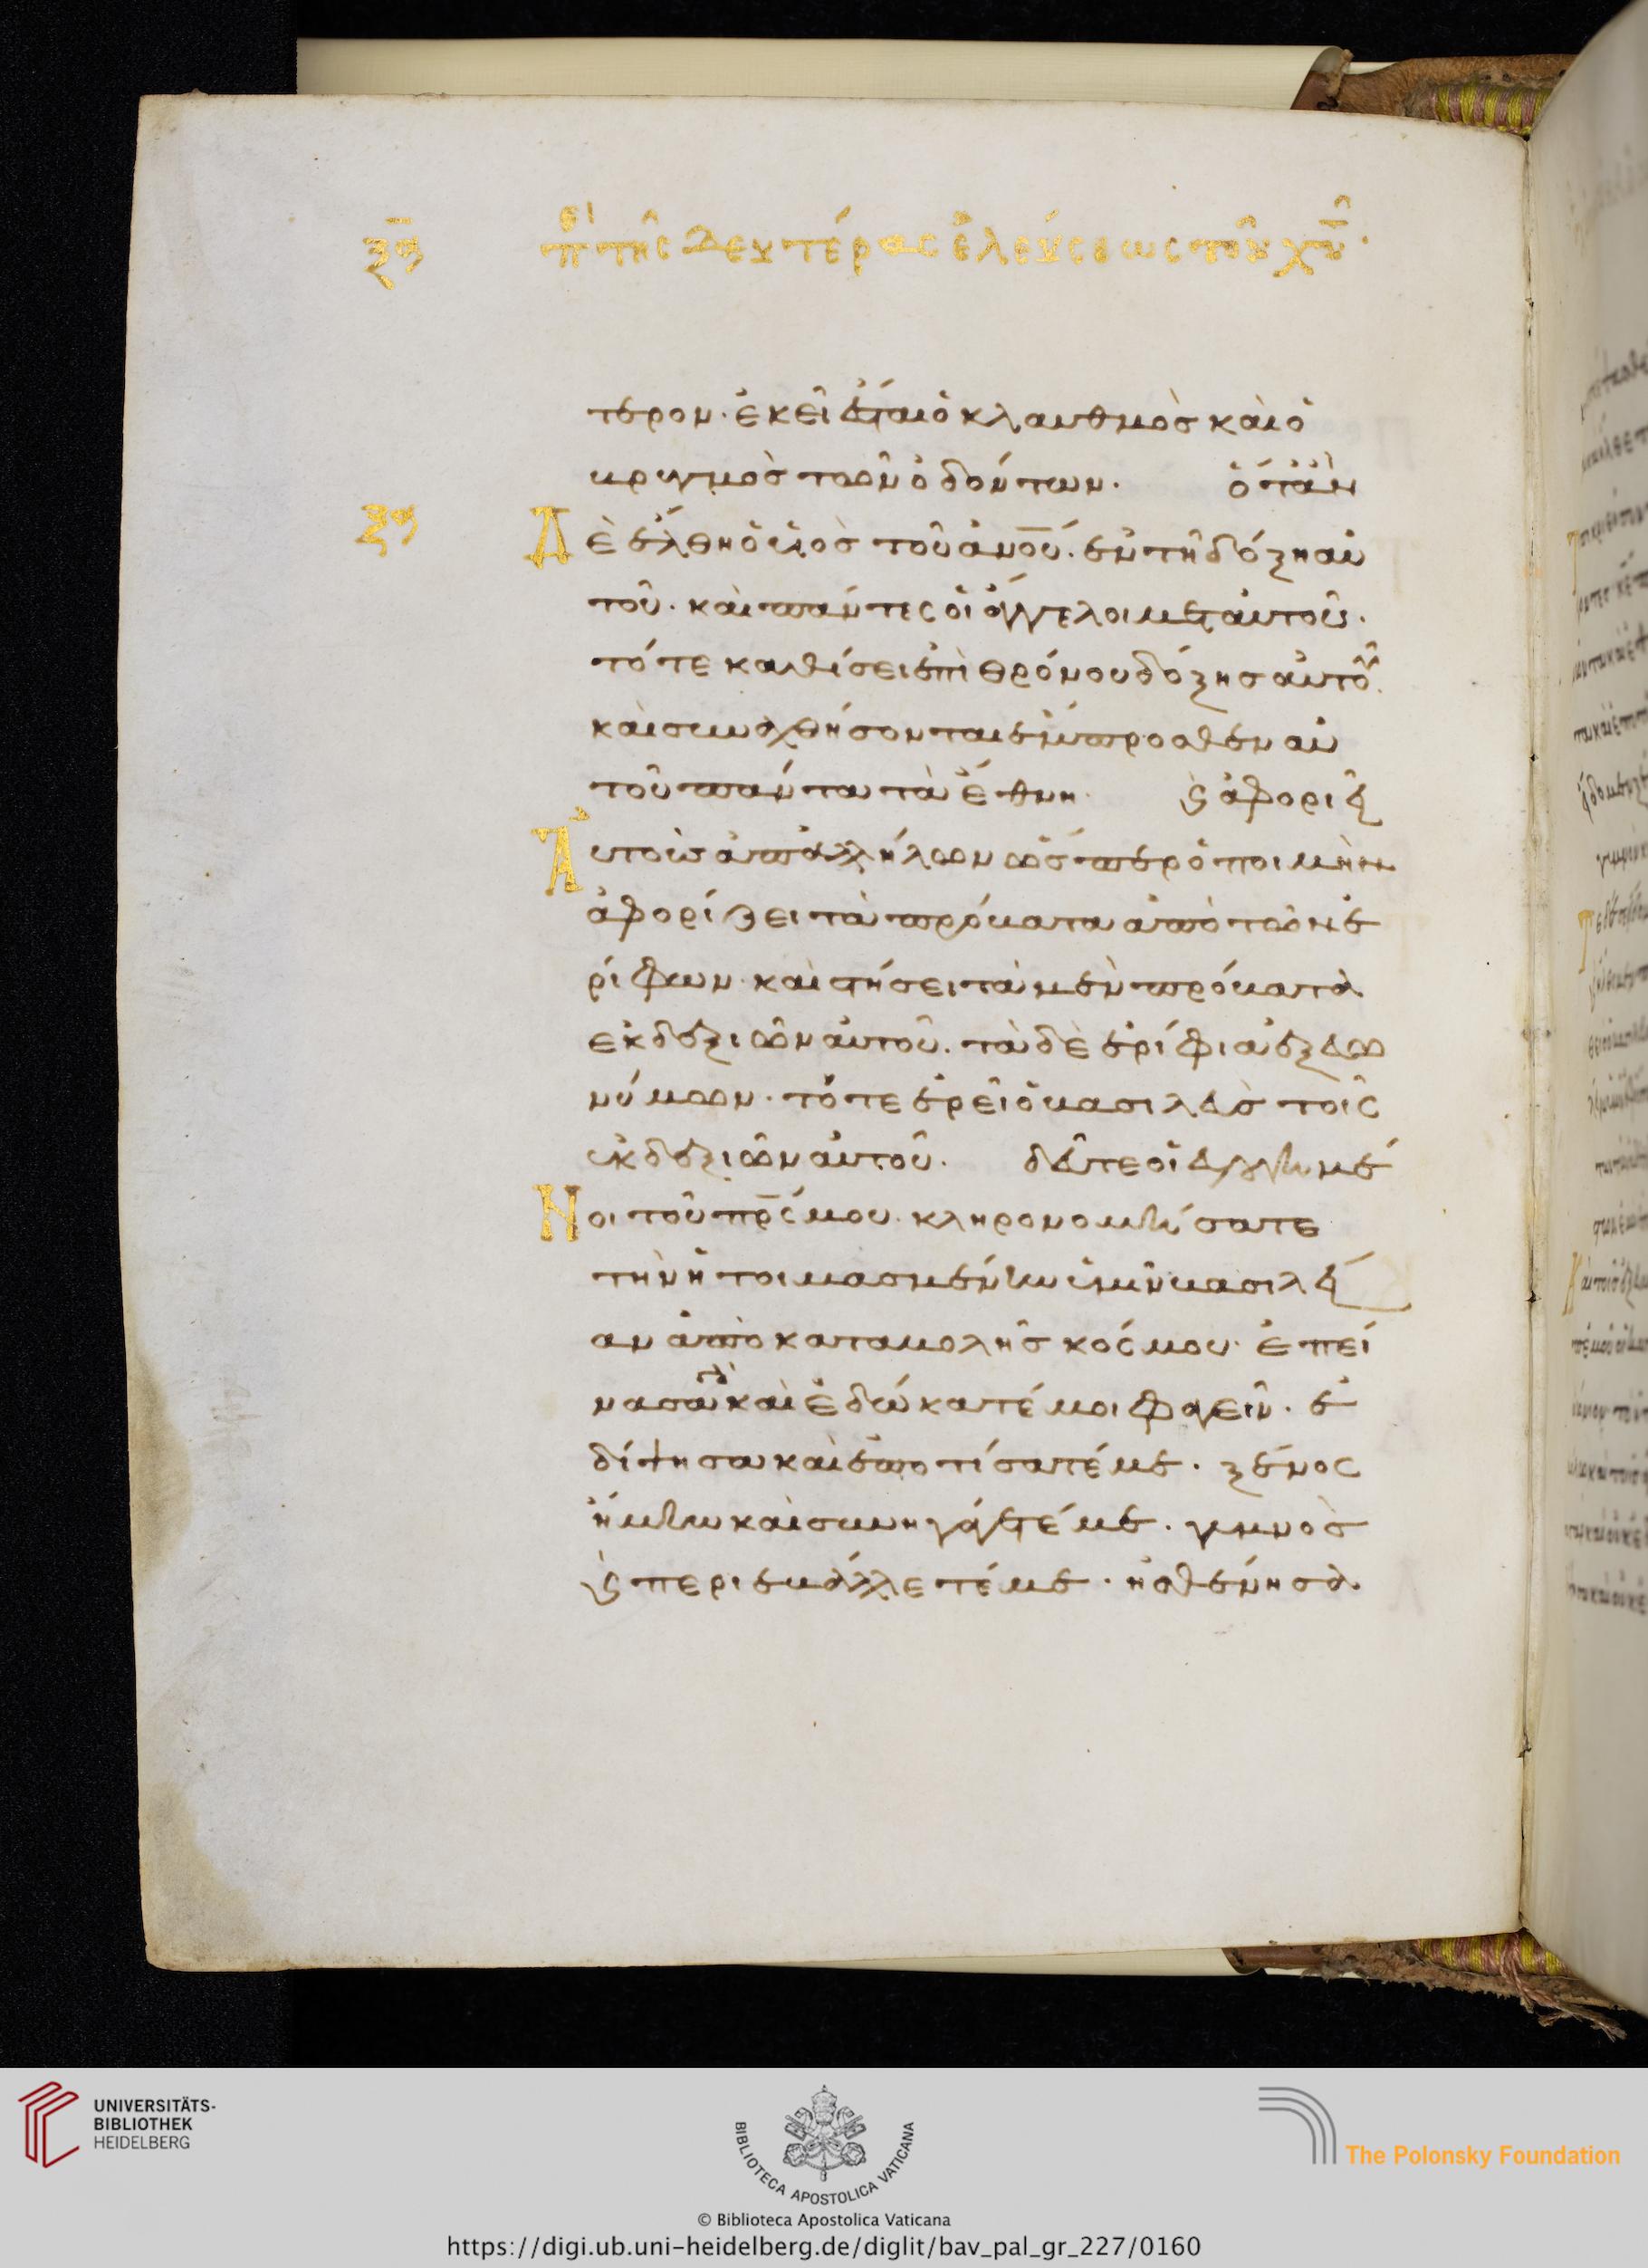 ξς̄ πε(ρὶ) τῆς δευτέρας ἐλεύσεως τοῦ χῦ·
τερον· ἐκεῖ ἔσται ὁ κλαυθμὸσ καὶ ὁ
βρυγμὸσ τῶν ὀδόντων· ὅταν
ξς Δὲ ἔλθη ὁ υἱὸσ τοῦ ἀνο̅ύ. ἐν τῆ δόξη αὐ
τοῦ· καὶ πάντες οἱ ἄγγελοι μετ αυτοῦ·
τότε καθίσει ἐπὶ θρόνου δόξησ αὐτοῦ.
καὶ συναχθήσονται ἔμπροσθεν αὐ
τοῦ πάντα τὰ ἔθνη· ϗ ἀφοριεῖ
Αὐτοὺσ ἀπ ἀλλήλων ὥσπερ ὁ ποιμὴν
ἀφορίζει τὰ πρόβατα ἀπὸ τῶν ἐ
ρίφων· καὶ στήσει τὰ μὲν πρόβατα
εκ δεξιῶν αὐτοῦ. τὰ δὲ ἐρίφια ἐξ εὐω
νύμων· τότε ἐρεῖ ὁ βασιλεὺσ τοῖς
ἐκ δεξιῶν αὐτοῦ· δεῦτε οἱ εὐλογημέ
Νοι τοῦ πρ̅ς μου· κληρονομήσατε
τὴν ἡτοιμασμένην ὑμῖν βασιλεί
αν ἀπὸ καταβολῆσ κόσμου· ἐπεί
νασα γὰρ καὶ ἐδώκατέ μοι φαγεῖν· ἐ
δίψησα καὶ ἐποτίσατέ με· ξένος
ἤμην καὶ συνηγάγετέ με· γυμνὸσ
ϗ περιεβάλλετέ με· ἠσθένησα
UNIVERSITÄTS-
BIBLIOTHEK
HEIDELBERG
BIBLIOTECA APOSTOLICA VATICANA
© Biblioteca Apostolica Vaticana
The Polonsky Foundation
https://digi.ub.uni-heidelberg.de/diglit/bav_pal_gr_227/0160